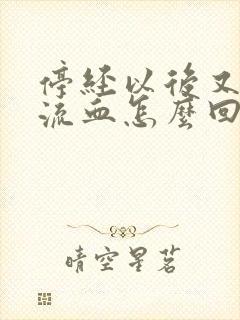 停經以後又
流血怎麼回
晴空星茗